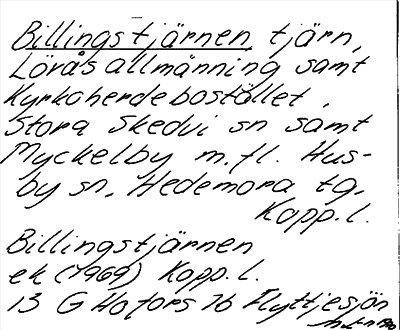 Billingstjärnen, tjärn,
Löråsallmänning samt
Kyrkoherdebostället,
Stora Skedvi sn samt
Myckelby m.fl. Hus-
by sn, Hedemora tg,
Kopp.l.
Billingstjärnen
ek (1969) Kopp.l.
13 G Hofors 7b Flyttjesjön